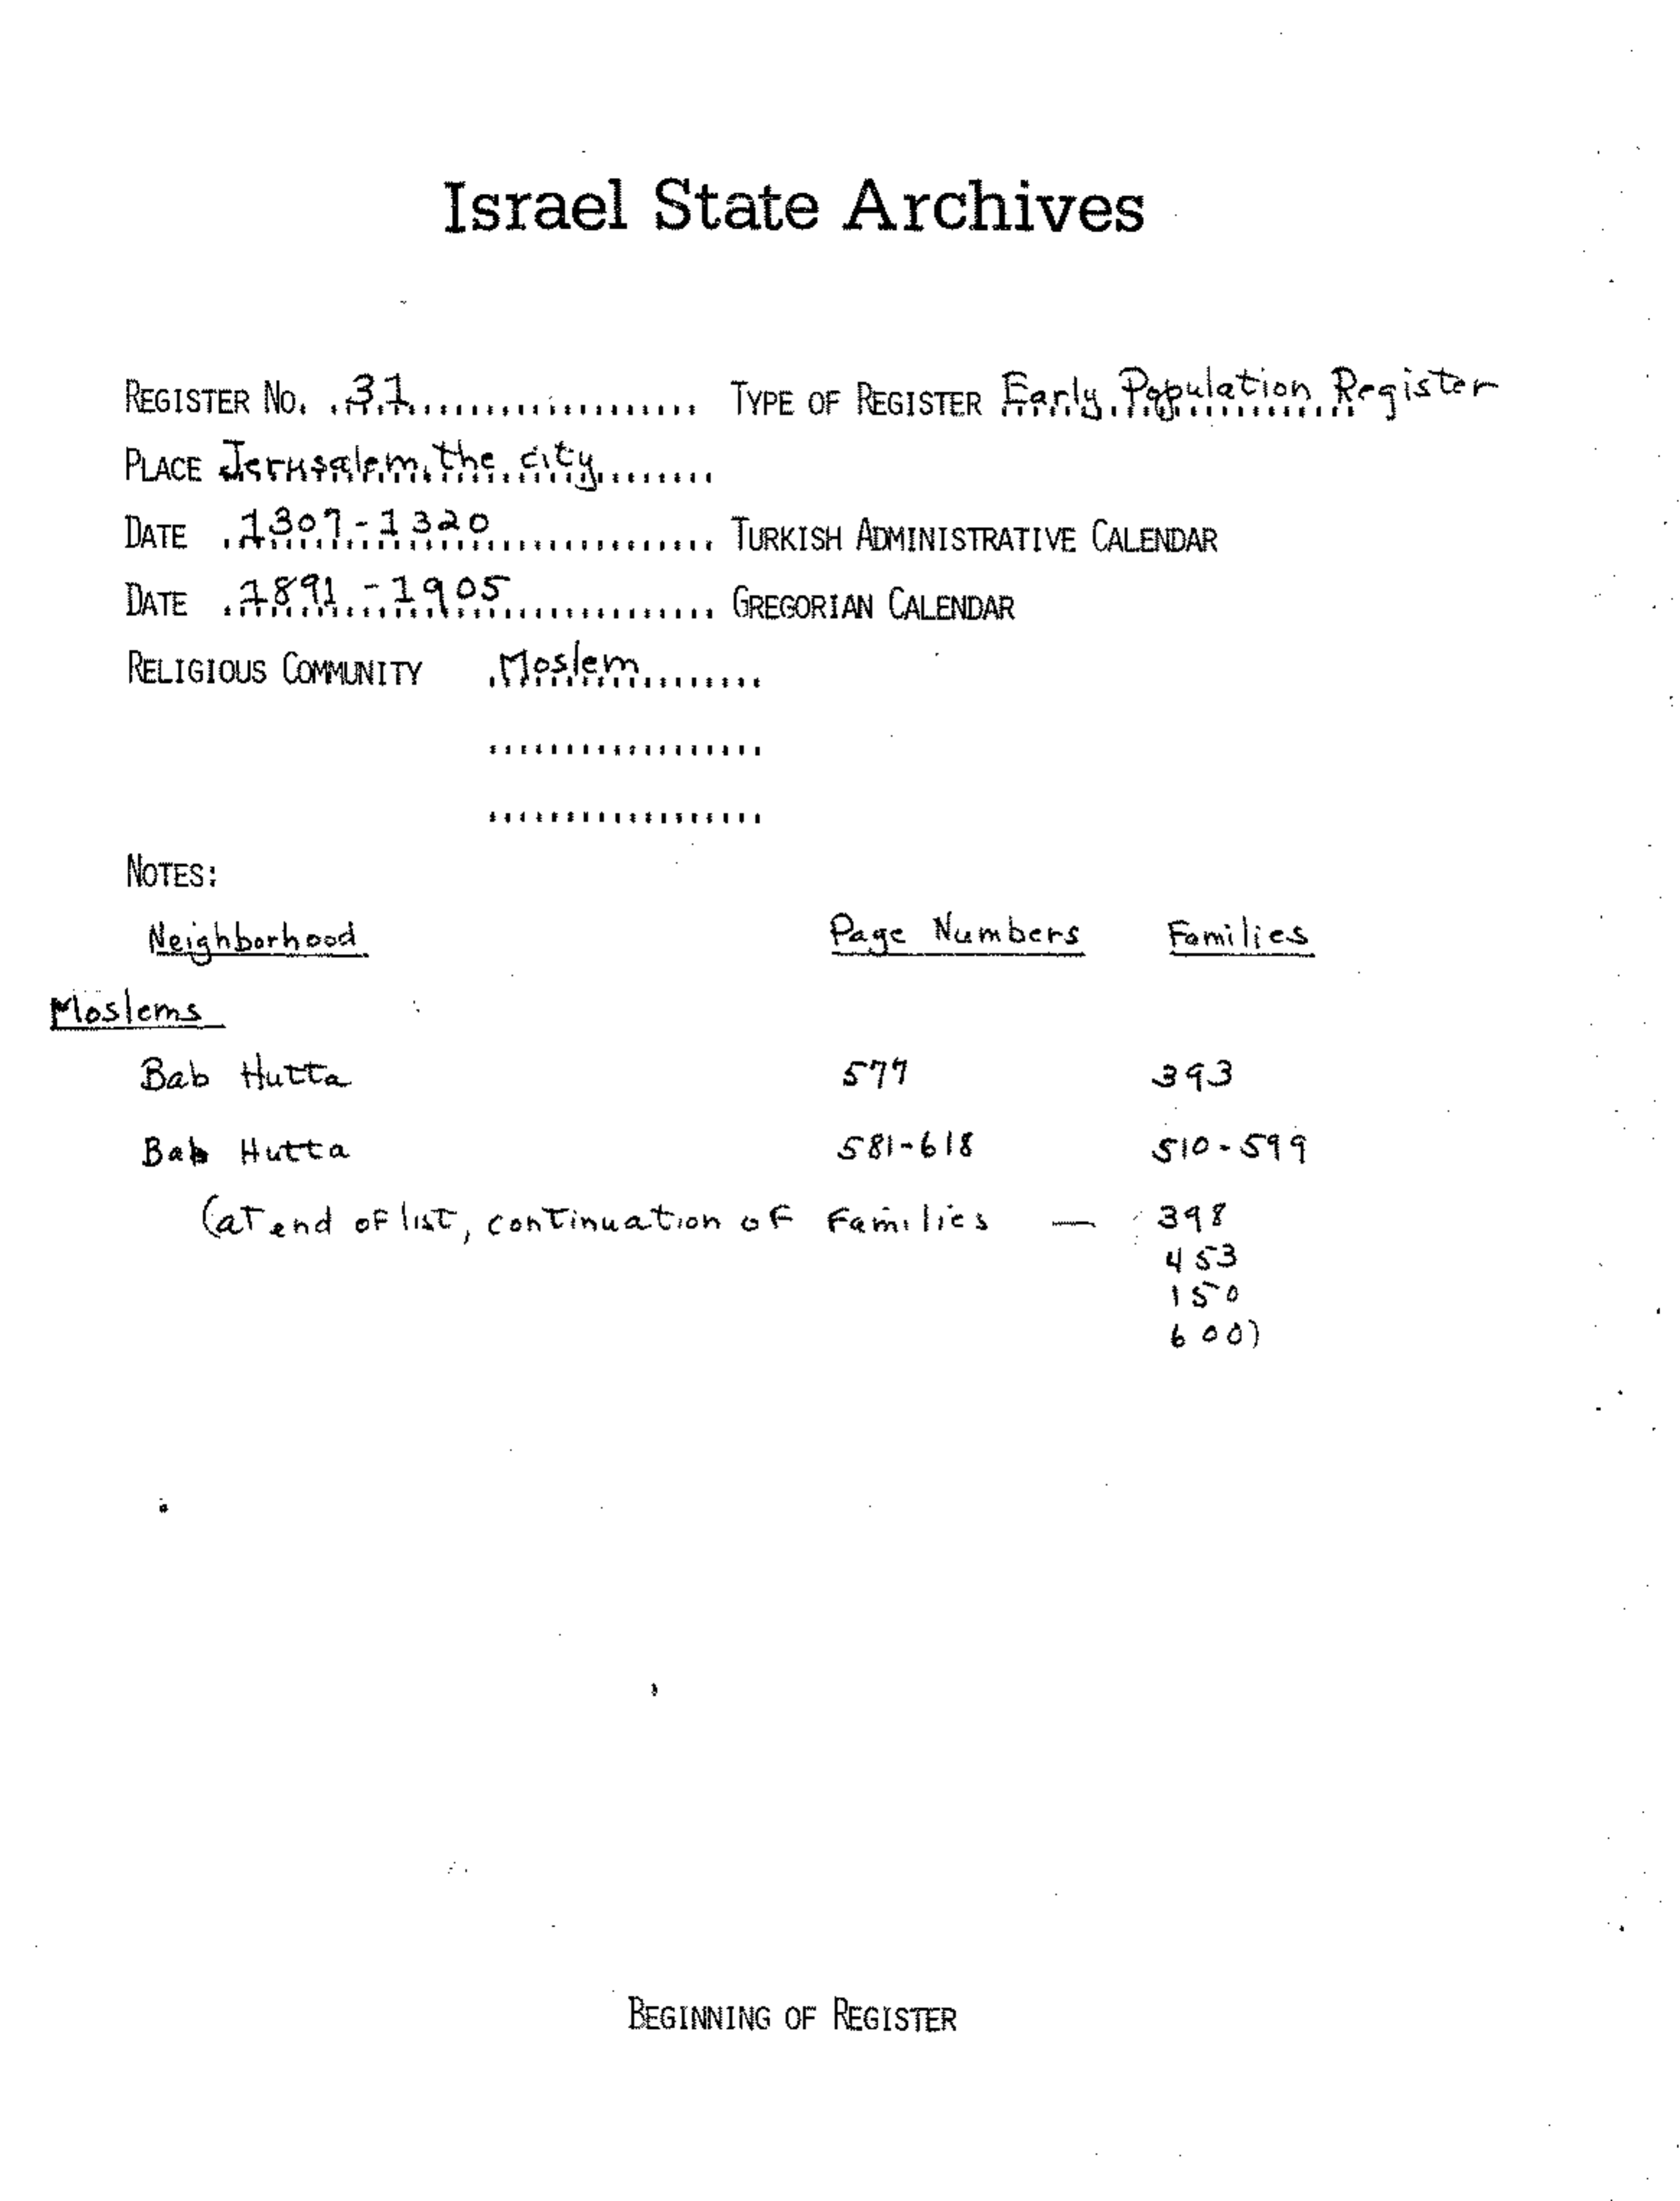 Israel State Archives
REGISTER NO. 31 TYPE OF REGISTER Early Population Register
PLACE Jerusalem, the city
DATE 1307-1320 TURKISH ADMINISTRATIVE CALENDAR
DATE 1891-1905 GREGORIAN CALENDAR
RELIGIOUS COMMUNITY Moslem
NOTES:
Neighborhood Page Numbers Families
Moslems
Bab Hutta 577 393
Bab Hutta 581-618 510-599
(at end of list, continuation of Families — 398
453
150
600)
BEGINNING OF REGISTER